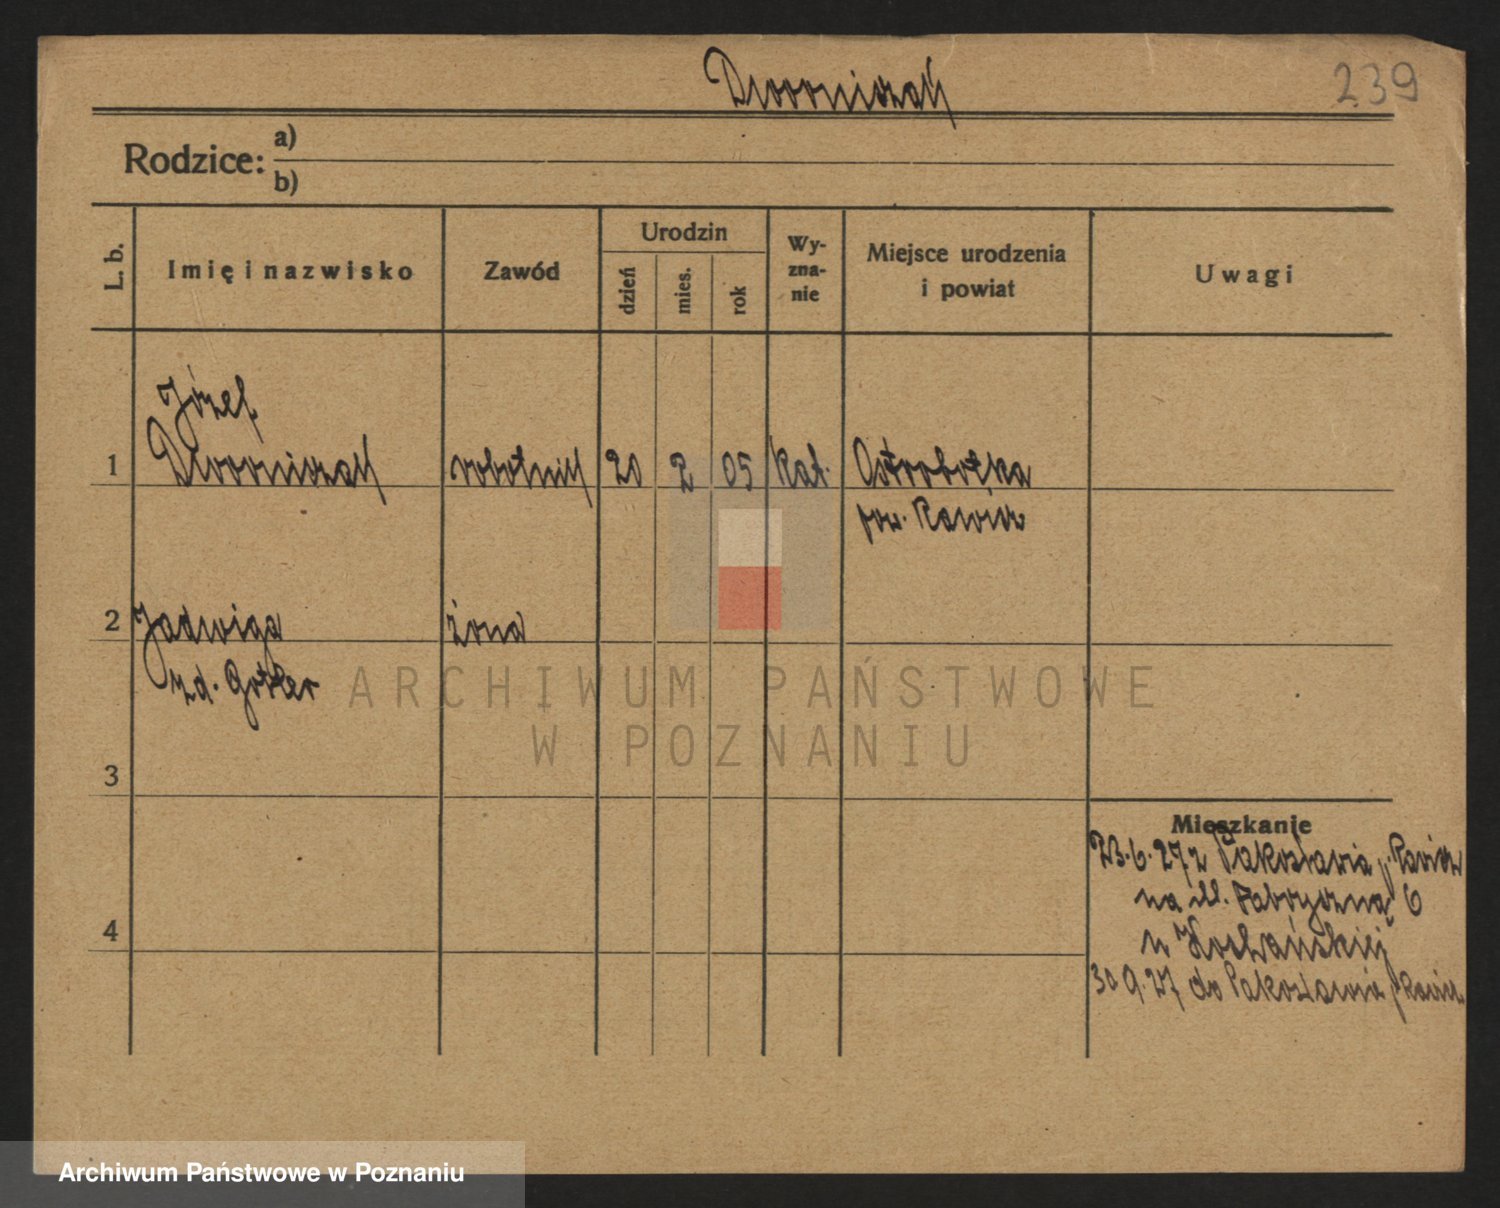 Dworniczak
239
Rodzice: a)
b)
L. b.
Imię i nazwisko
Zawód
Urodzin
dzień
mies.
rok
Wy-
zna-
nie
Miejsce urodzenia
i powiat
Uwagi
Józef
1 Dworniczak robotnik 20 2 05 kat. Ostrobółka
pow. Rawicz
2 Jadwiga żona
zd. Gotler
ARCHIWUM PAŃSTWOWE
W POZNANIU
3
Mieszkanie
23.6.27 z Pakosławia p. Rawicz
na ul. Fabryczną 6
4
30 9.27 do Pakosławia p. Rawicz
Archiwum Państwowe w Poznaniu